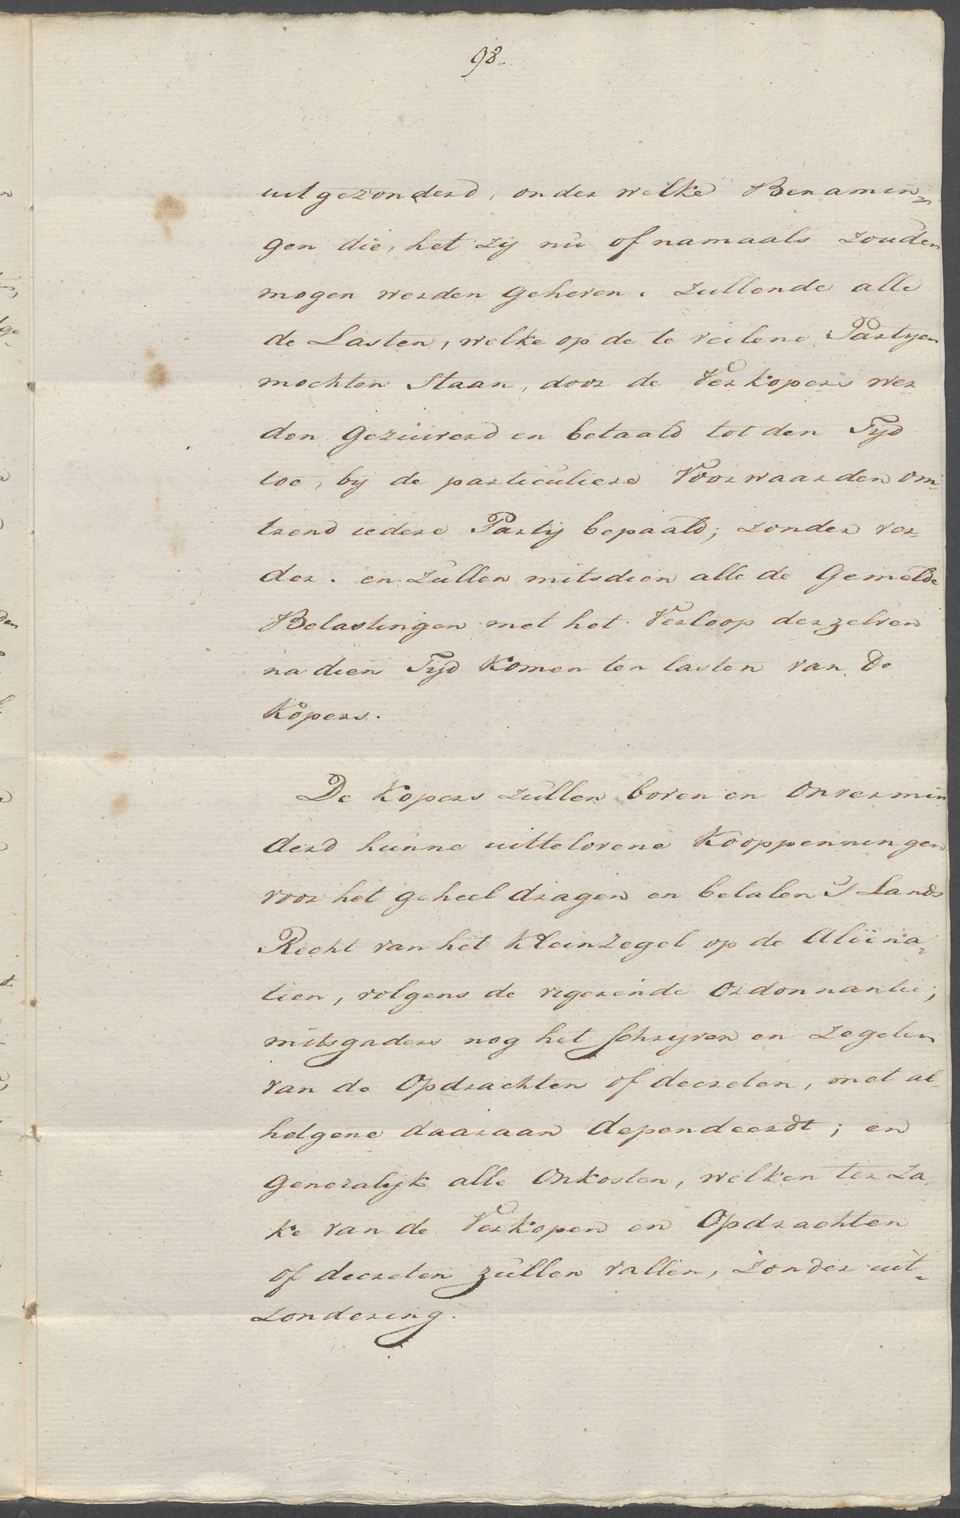 98.
uitgezonderd, onder welke Benamin-
gen die, het zij nu of namaals zouden
mogen werden geheven. zullende alle
de Lasten, welke op de te veilene Partyen
mochten staan, door de Verkopers wer-
den gezuiverd en betaald tot den Tyd
toe, by de particuliere Voorwaarden om-
trend iedere Party bepaald; zonder ver-
der. en zullen mitsdien alle de Gemelde
Belastingen met het Verloop derzelven
na dien Tyd komen ten lasten van de
Kopers.
De Kopers zullen boven en onvermin
derd hunne uittelovene Kooppenningen
voor het geheel dragen en betalen 's Lands
Recht van het Kleinzegel op de Aliëna-
tien, volgens de vigerende Ordonnantie;
mitsgaders nog het schryven en zegelen
van de Opdrachten of decreten, met al-
hetgene daaraan dependeerdt; en
generalyk alle Onkosten, welken ter za
ke van de Verkopen en Opdrachten
of decreten zullen vallen, zonder uit-
zondering.